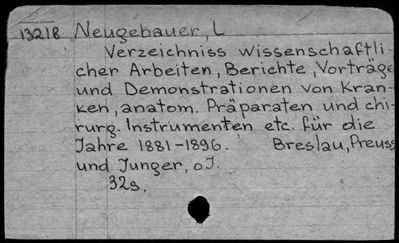 13218 Neugebauer, L
Verzeichniss wissenschaftli-
cher Arbeiten, Berichte, Vorträge
und Demonstrationen von Kran-
ken, anatom. Präparaten und chi-
rurg. Instrumenten etc. für die
Jahre 1881-1896. Breslau, Preuss
und Junger, o J.
32s.